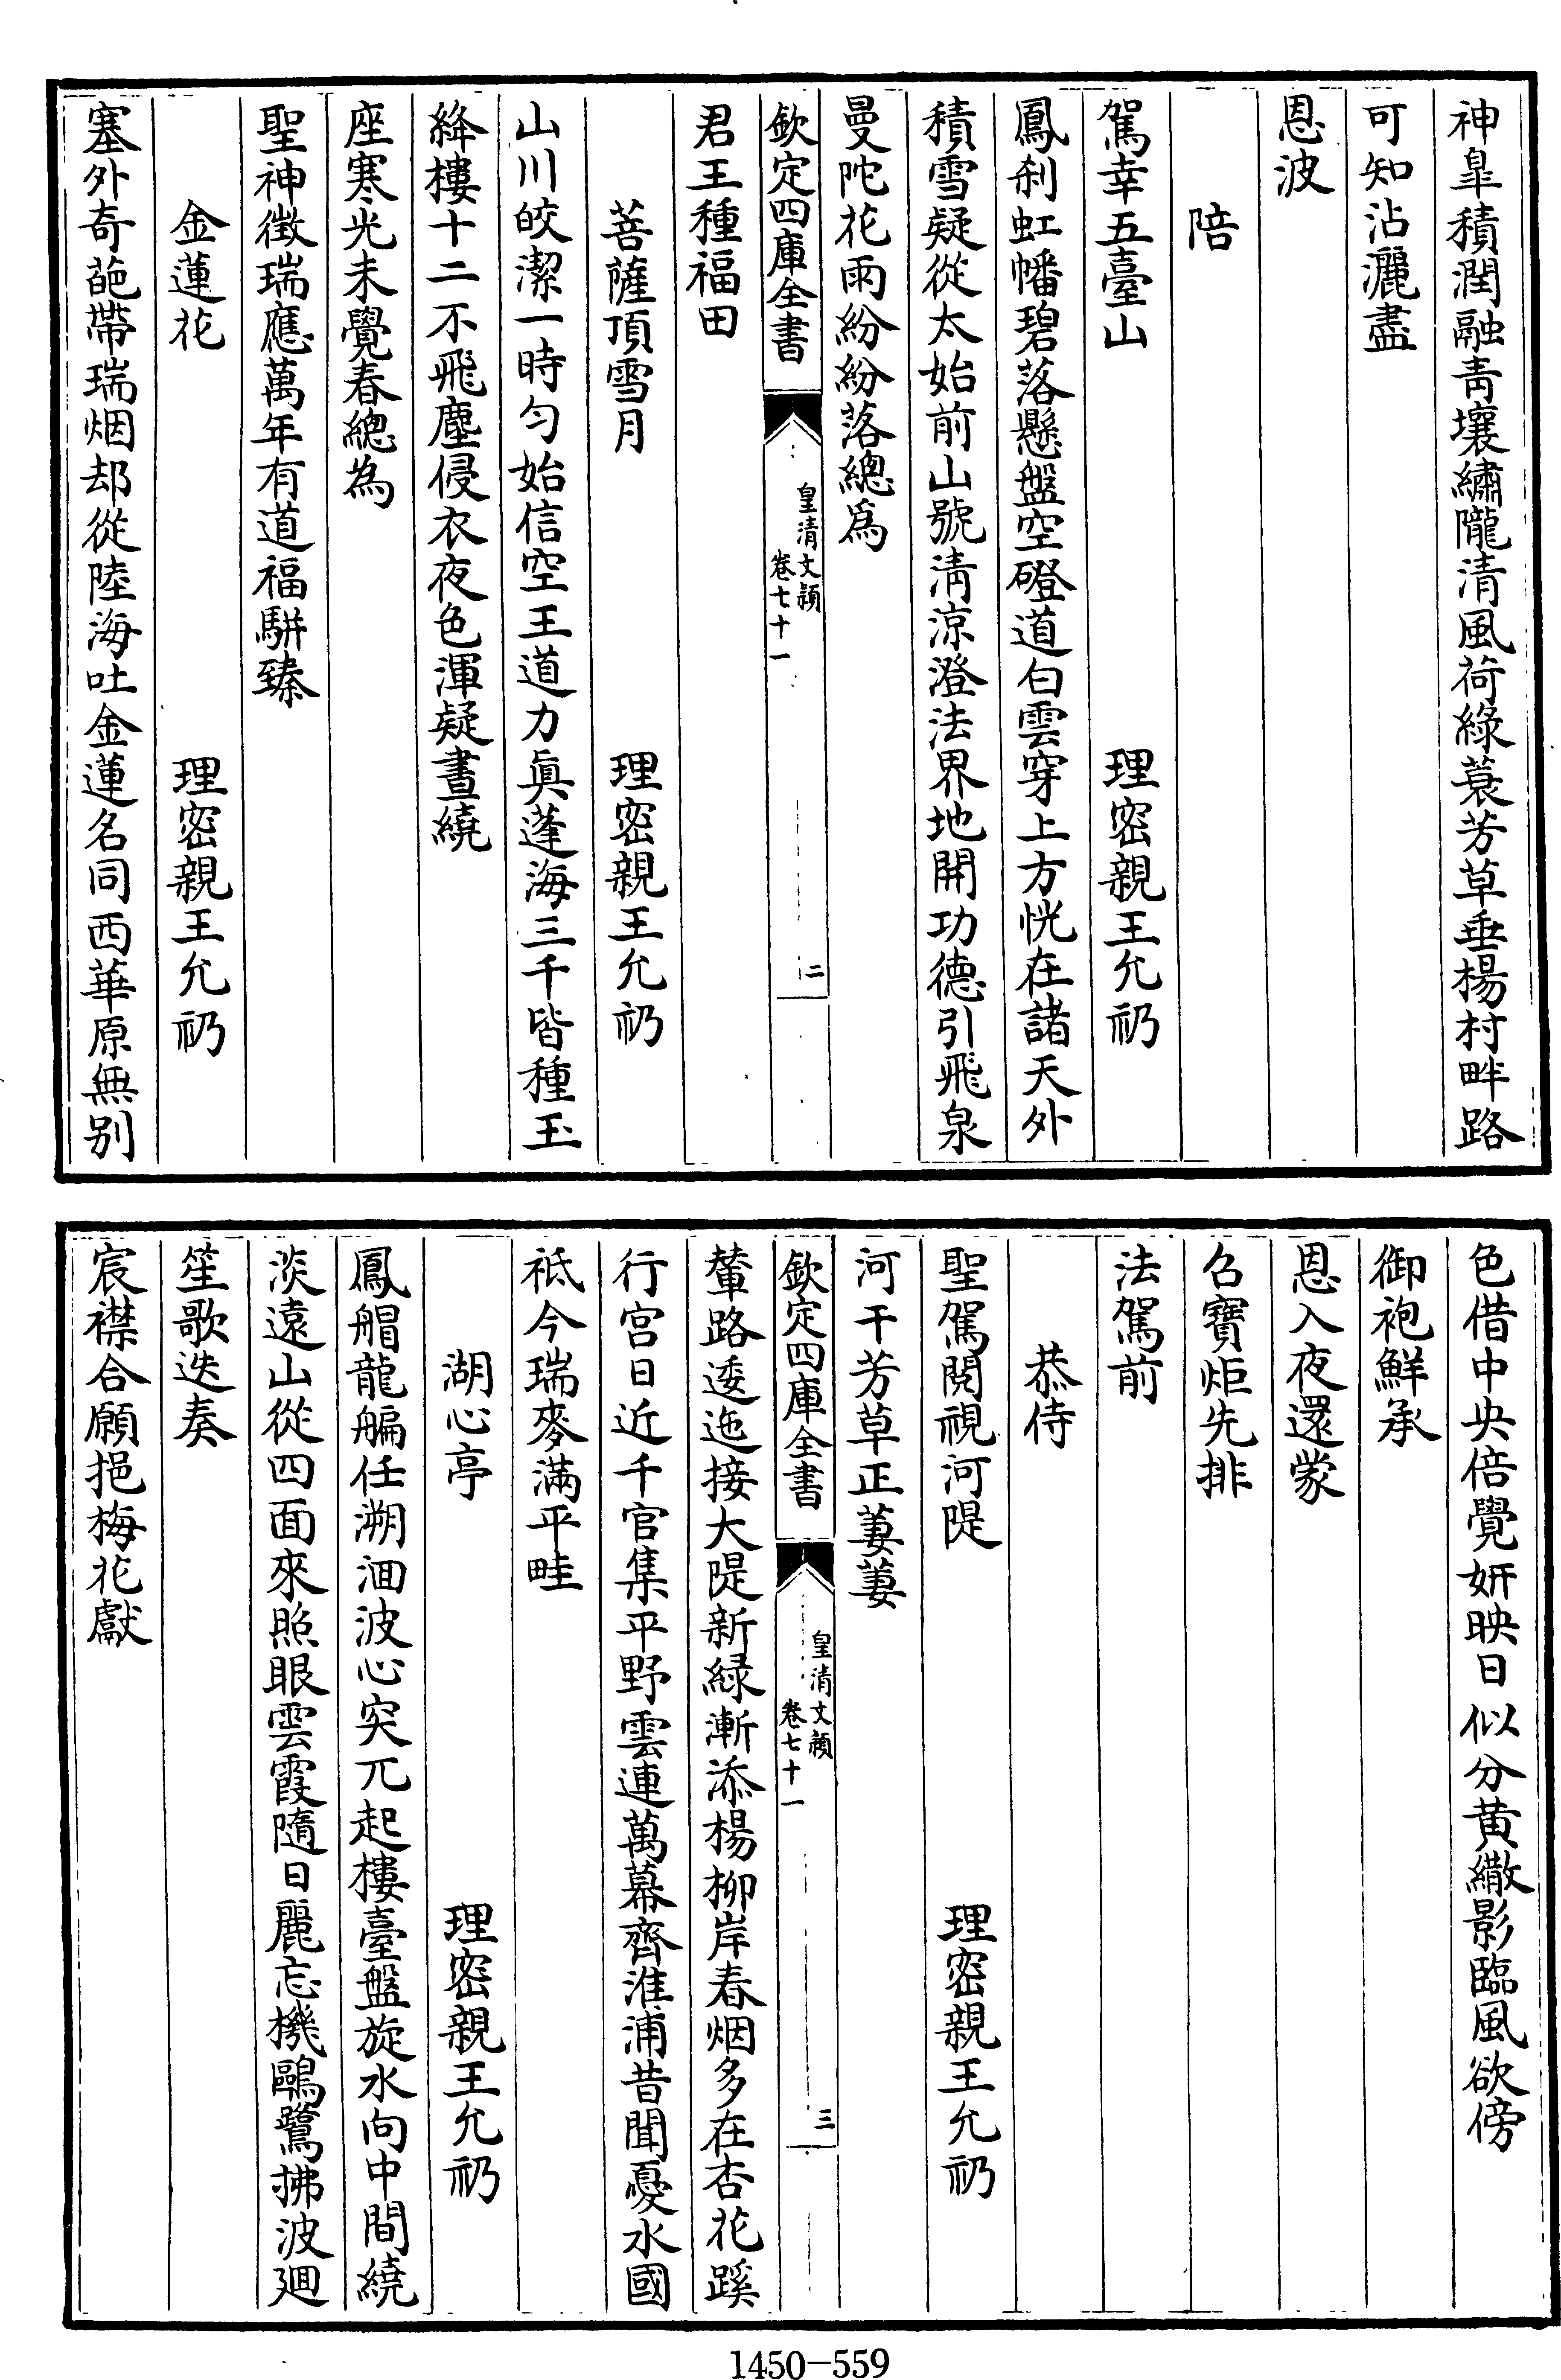 神臯積潤融青壤繡隴清風荷綠蓑芳草垂楊村畔路
可知沾灑盡
恩波
陪
駕幸五臺山 理密親王允礽
鳳刹虹幡碧落懸盤空磴道白雲穿上方恍在諸天外
積雪疑從太始前山號清涼澄法界地開功德引飛泉
曼陀花雨紛紛落總爲
欽定四庫全書 皇清文穎 卷七十一 二
君王種福田
菩薩頂雪月 理密親王允礽
山川皎潔一時勻始信空王道力眞蓬海三千皆種玉
絳樓十二不飛塵侵衣夜色渾疑晝繞
座寒光未覺春總為
聖神徵瑞應萬年有道福駢臻
金蓮花 理密親王允礽
塞外奇葩帶瑞烟却從陸海吐金蓮名同西華原無别
色借中央倍覺妍映日似分黄繖影臨風欲傍
御袍鮮承
恩入夜還蒙
召寶炬先排
法駕前
恭侍
聖駕閱視河隄 理密親王允礽
河干芳草正萋萋
欽定四庫全書 皇清文穎 卷七十一 三
輦路逶迤接大隄新緑漸添楊柳岸春烟多在杏花蹊
行宫日近千官集平野雲連萬幕齊淮浦昔聞憂水國
祗今瑞麥滿平畦
湖心亭 理密親王允礽
鳳艒龍艑任溯洄波心突兀起樓臺盤旋水向中間繞
淡遠山從四面來照眼雲霞隨日麗忘機鷗鷺拂波廻
笙歌迭奏
宸襟合願挹梅花獻
1450-559